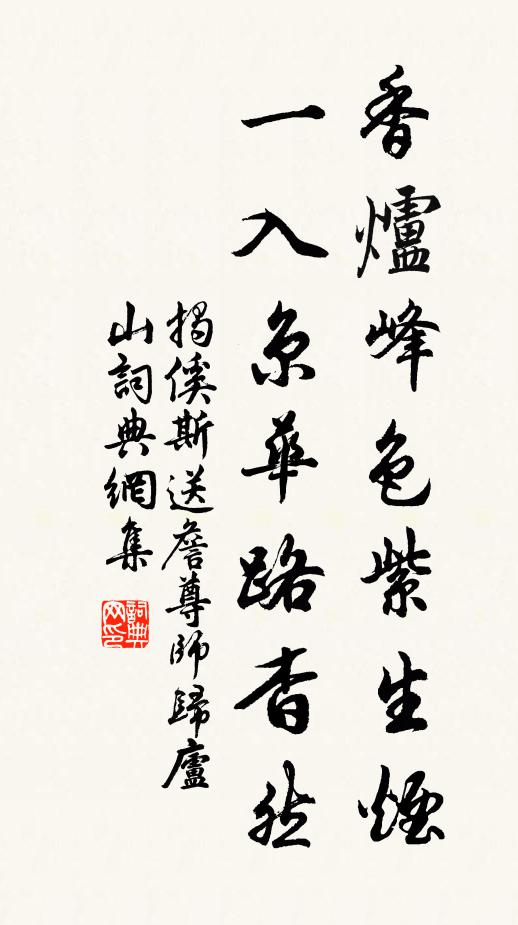 香爐峰色紫生煙
一入京華路杳然
揭傒斯送詹尊師歸廬
山詞典網集
詞典網印